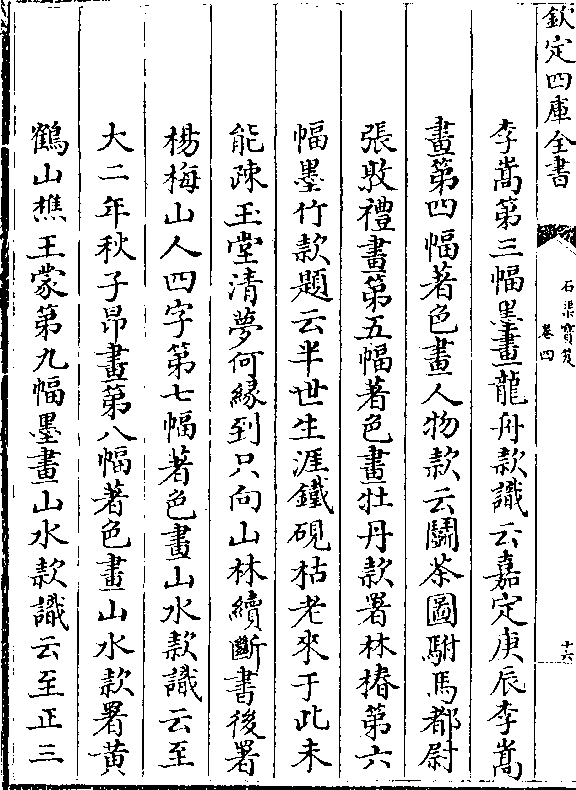 欽定四庫全書
石渠寶笈
卷四
十六
李嵩第三幅墨畫龍舟款識云嘉定庚辰李嵩
畫第四幅著色畫人物款云鬭茶圖駙馬都尉
張敦禮畫第五幅著色畫牡丹款署林椿第六
幅墨竹款題云半世生涯鐵硯枯老來于此未
能疎玉堂清夢何緣到只向山林續斷書後署
楊梅山人四字第七幅著色畫山水款識云至
大二年秋子昂畫第八幅著色畫山水款署黄
鶴山樵王蒙第九幅墨畫山水款識云至正三